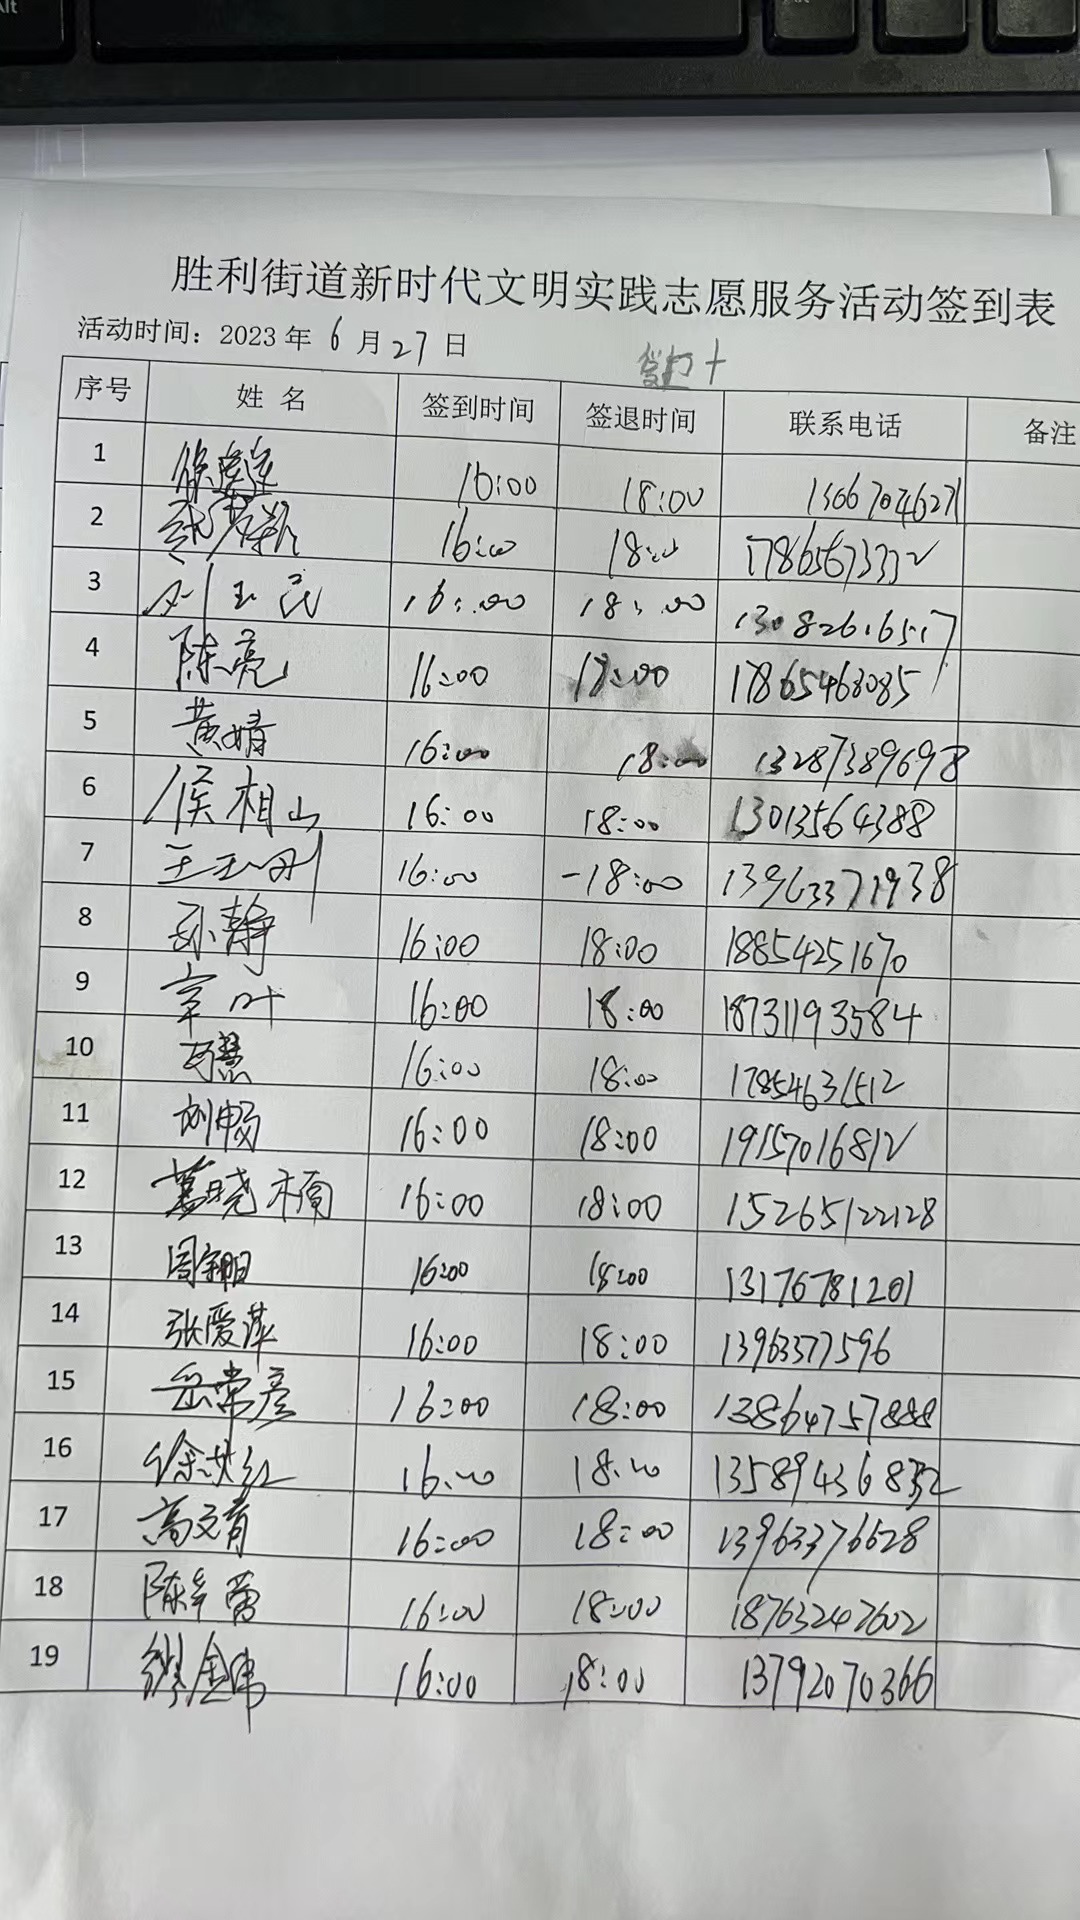 胜利街道新时代文明实践志愿服务活动签到表
活动时间：2023年6月27日
序号 姓 名 签到时间 签退时间 联系电话 备注
1 16:00 18:00 13667046271
2 16:00 18:00 17865673332
3 刘玉民 16:00 18:00 13082616517
4 陈亮 16:00 18:00 17865463085
5 黄婧 16:00 18:00 13287389698
6 侯相山 16:00 18:00 13013564388
7 16:00 -18:00 13963371938
8 孙静 16:00 18:00 18854251670
9 章叶 16:00 18:00 18731193584
10 16:00 18:00 17854631512
11 刘畅 16:00 18:00 19157016812
12 葛晓桢 16:00 18:00 15265122128
13 16:00 18:00 13176781201
14 张爱萍 16:00 18:00 13963577596
15 岳常彦 16:00 18:00 13864757888
16 徐洪红 16:00 18:00 13589436832
17 高文育 16:00 18:00 13963376628
18 16:00 18:00 18763247602
19 16:00 18:00 13792070366